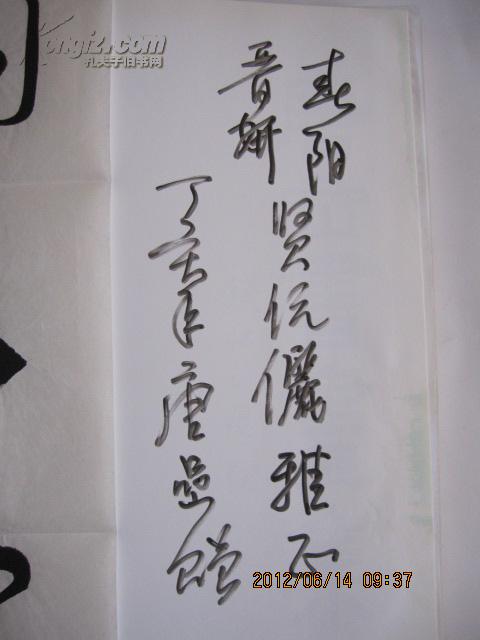 春阳
晋妍
贤伉儷雅正
丁亥年唐 赠
Kongfz.com
孔夫子旧书网
2012/06/14 09:37